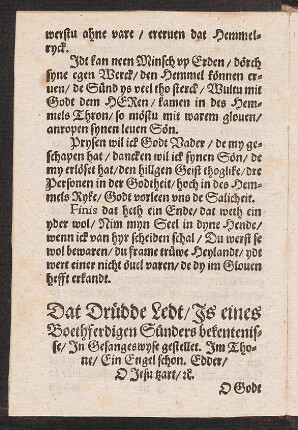 werstu ahne vare / ererven dat Hemmel-
ryck.
Jdt kan neen Minsch vp Erden / dörch
syne egen Werck / den Hemmel können er-
uen / de Sünd ys veel tho sterck / Wultu mit
Godt dem HEREn / kamen in des Hem-
mels Thron / so möstu mit warem glouen /
anropen synen leuen Sön.
Prysen wil ick Godt Vader / de my ge-
schapen hat / dancken wil ick synen Sön / de
my erlöset hat / den hilligen Geist thoglike / dre
Personen in der Godtheit / hoch in des Hem-
mels Ryke / Godt vorleen vns de Salicheit.
Finis dat heth ein Ende / dat weth ein
yder wol / Nim myn Seel in dyne Hende /
wenn ick van hyr scheiden schal / Du werst se
wol bewaren / du frame trüwe Heylandt / ydt
wert einer nicht öuel varen / de dy im Glouen
hefft erkandt.
Dat Drüdde Ledt / Js eines
Boethferdigen Sünders bekentenis-
se / Jn Gesangeswyse gestellet. Jm Tho-
ne / Ein Engel schon. Edder /
O Jesu tzart / ꝛc.
O Godt